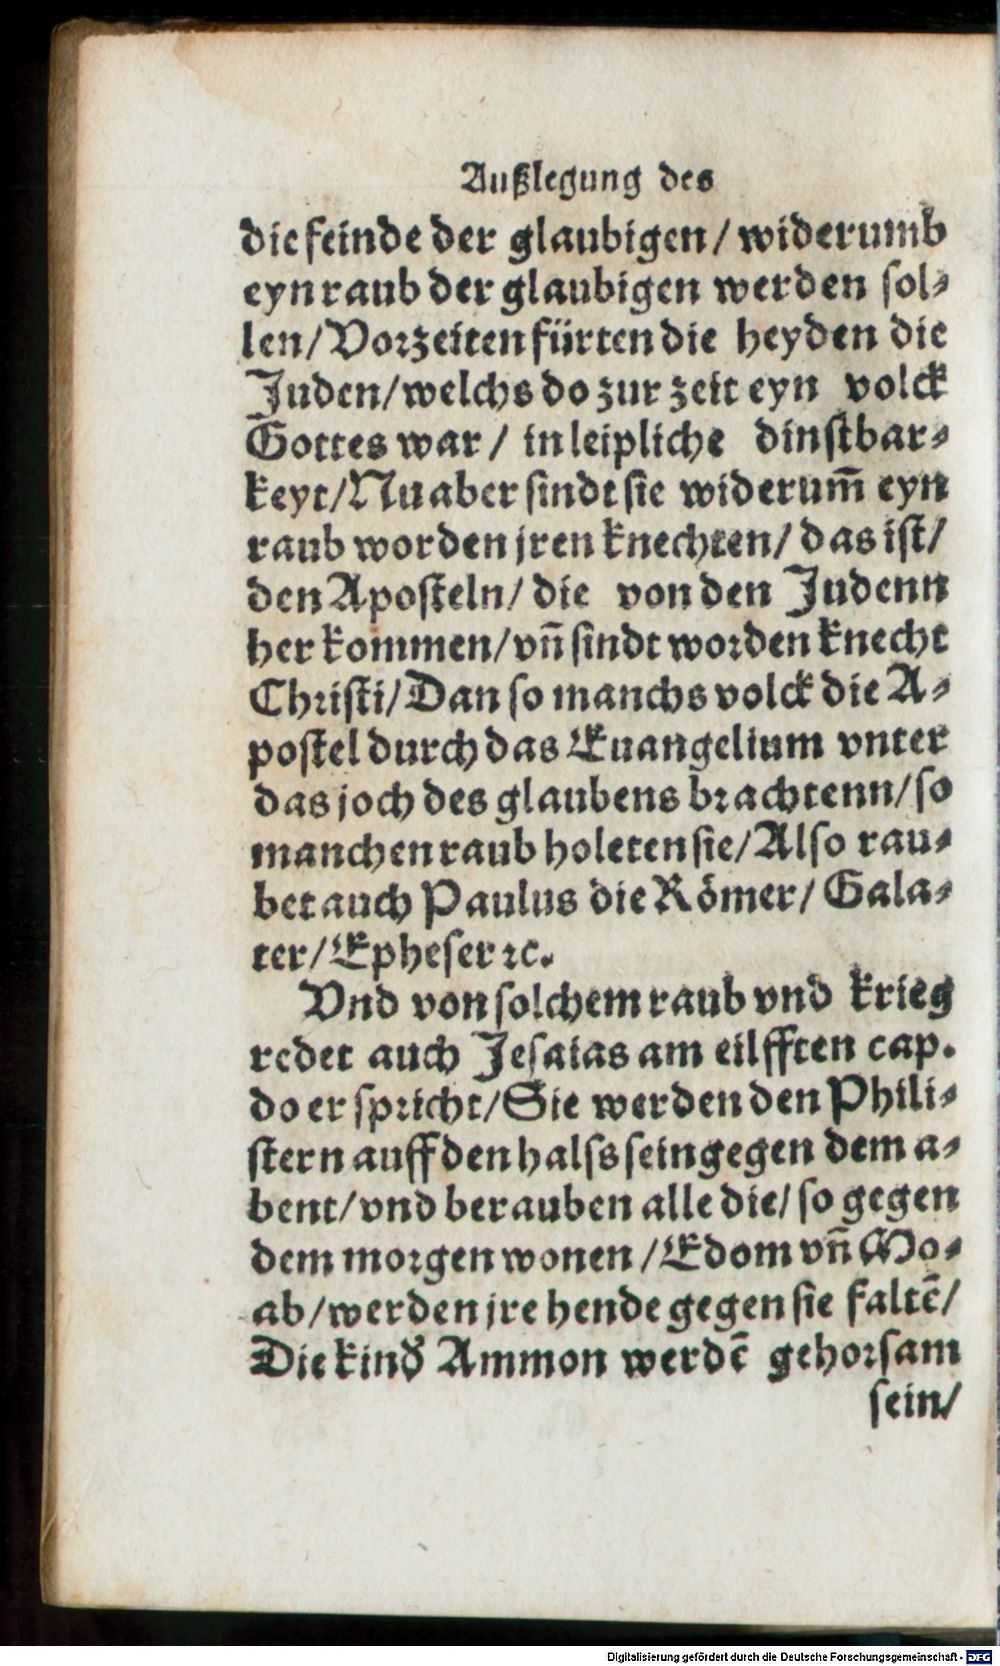 Außlegung des
die feinde der glaubigen/ widerumb
eyn raub der glaubigen werden sol⸗
len/Vorzeiten fürten die heyden die
Juden/welchs do zur zeit eyn volck
Gottes war/ in leipliche dinstbar⸗
keyt/Nu aber sindt sie widerum̃ eyn
raub worden jren knechten/ das ist/
den Aposteln/ die von den Judenn
her kommen/vñ sindt worden knecht
Christi/Dan so manchs volck die A⸗
postel durch das Euangelium vnter
das joch des glaubens brachtenn/so
manchen raub holeten sie/Also rau⸗
bet auch Paulus die Römer/ Gala⸗
ter/Epheser ꝛc.
Vnd von solchem raub vnd krieg
redet auch Jesaias am eilfften cap.
do er spricht/Sie werden den Phili⸗
stern auff den halss sein gegen dem a⸗
bent/vnd berauben alle die/ so gegen
dem morgen wonen/Edom vñ Mo⸗
ab/werden jre hende gegen sie faltẽ/
Die kind̕ Ammon werdẽ gehorsam
sein/
Digitalisierung gefördert durch die Deutsche Forschungsgemeinschaft - DFG